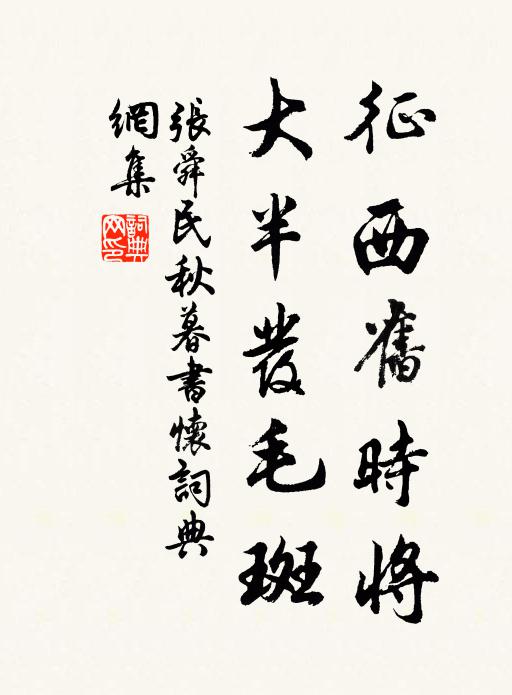 征西舊時將
大半發毛斑
張舜民秋暮書懷詞典
網集
詞典
网印